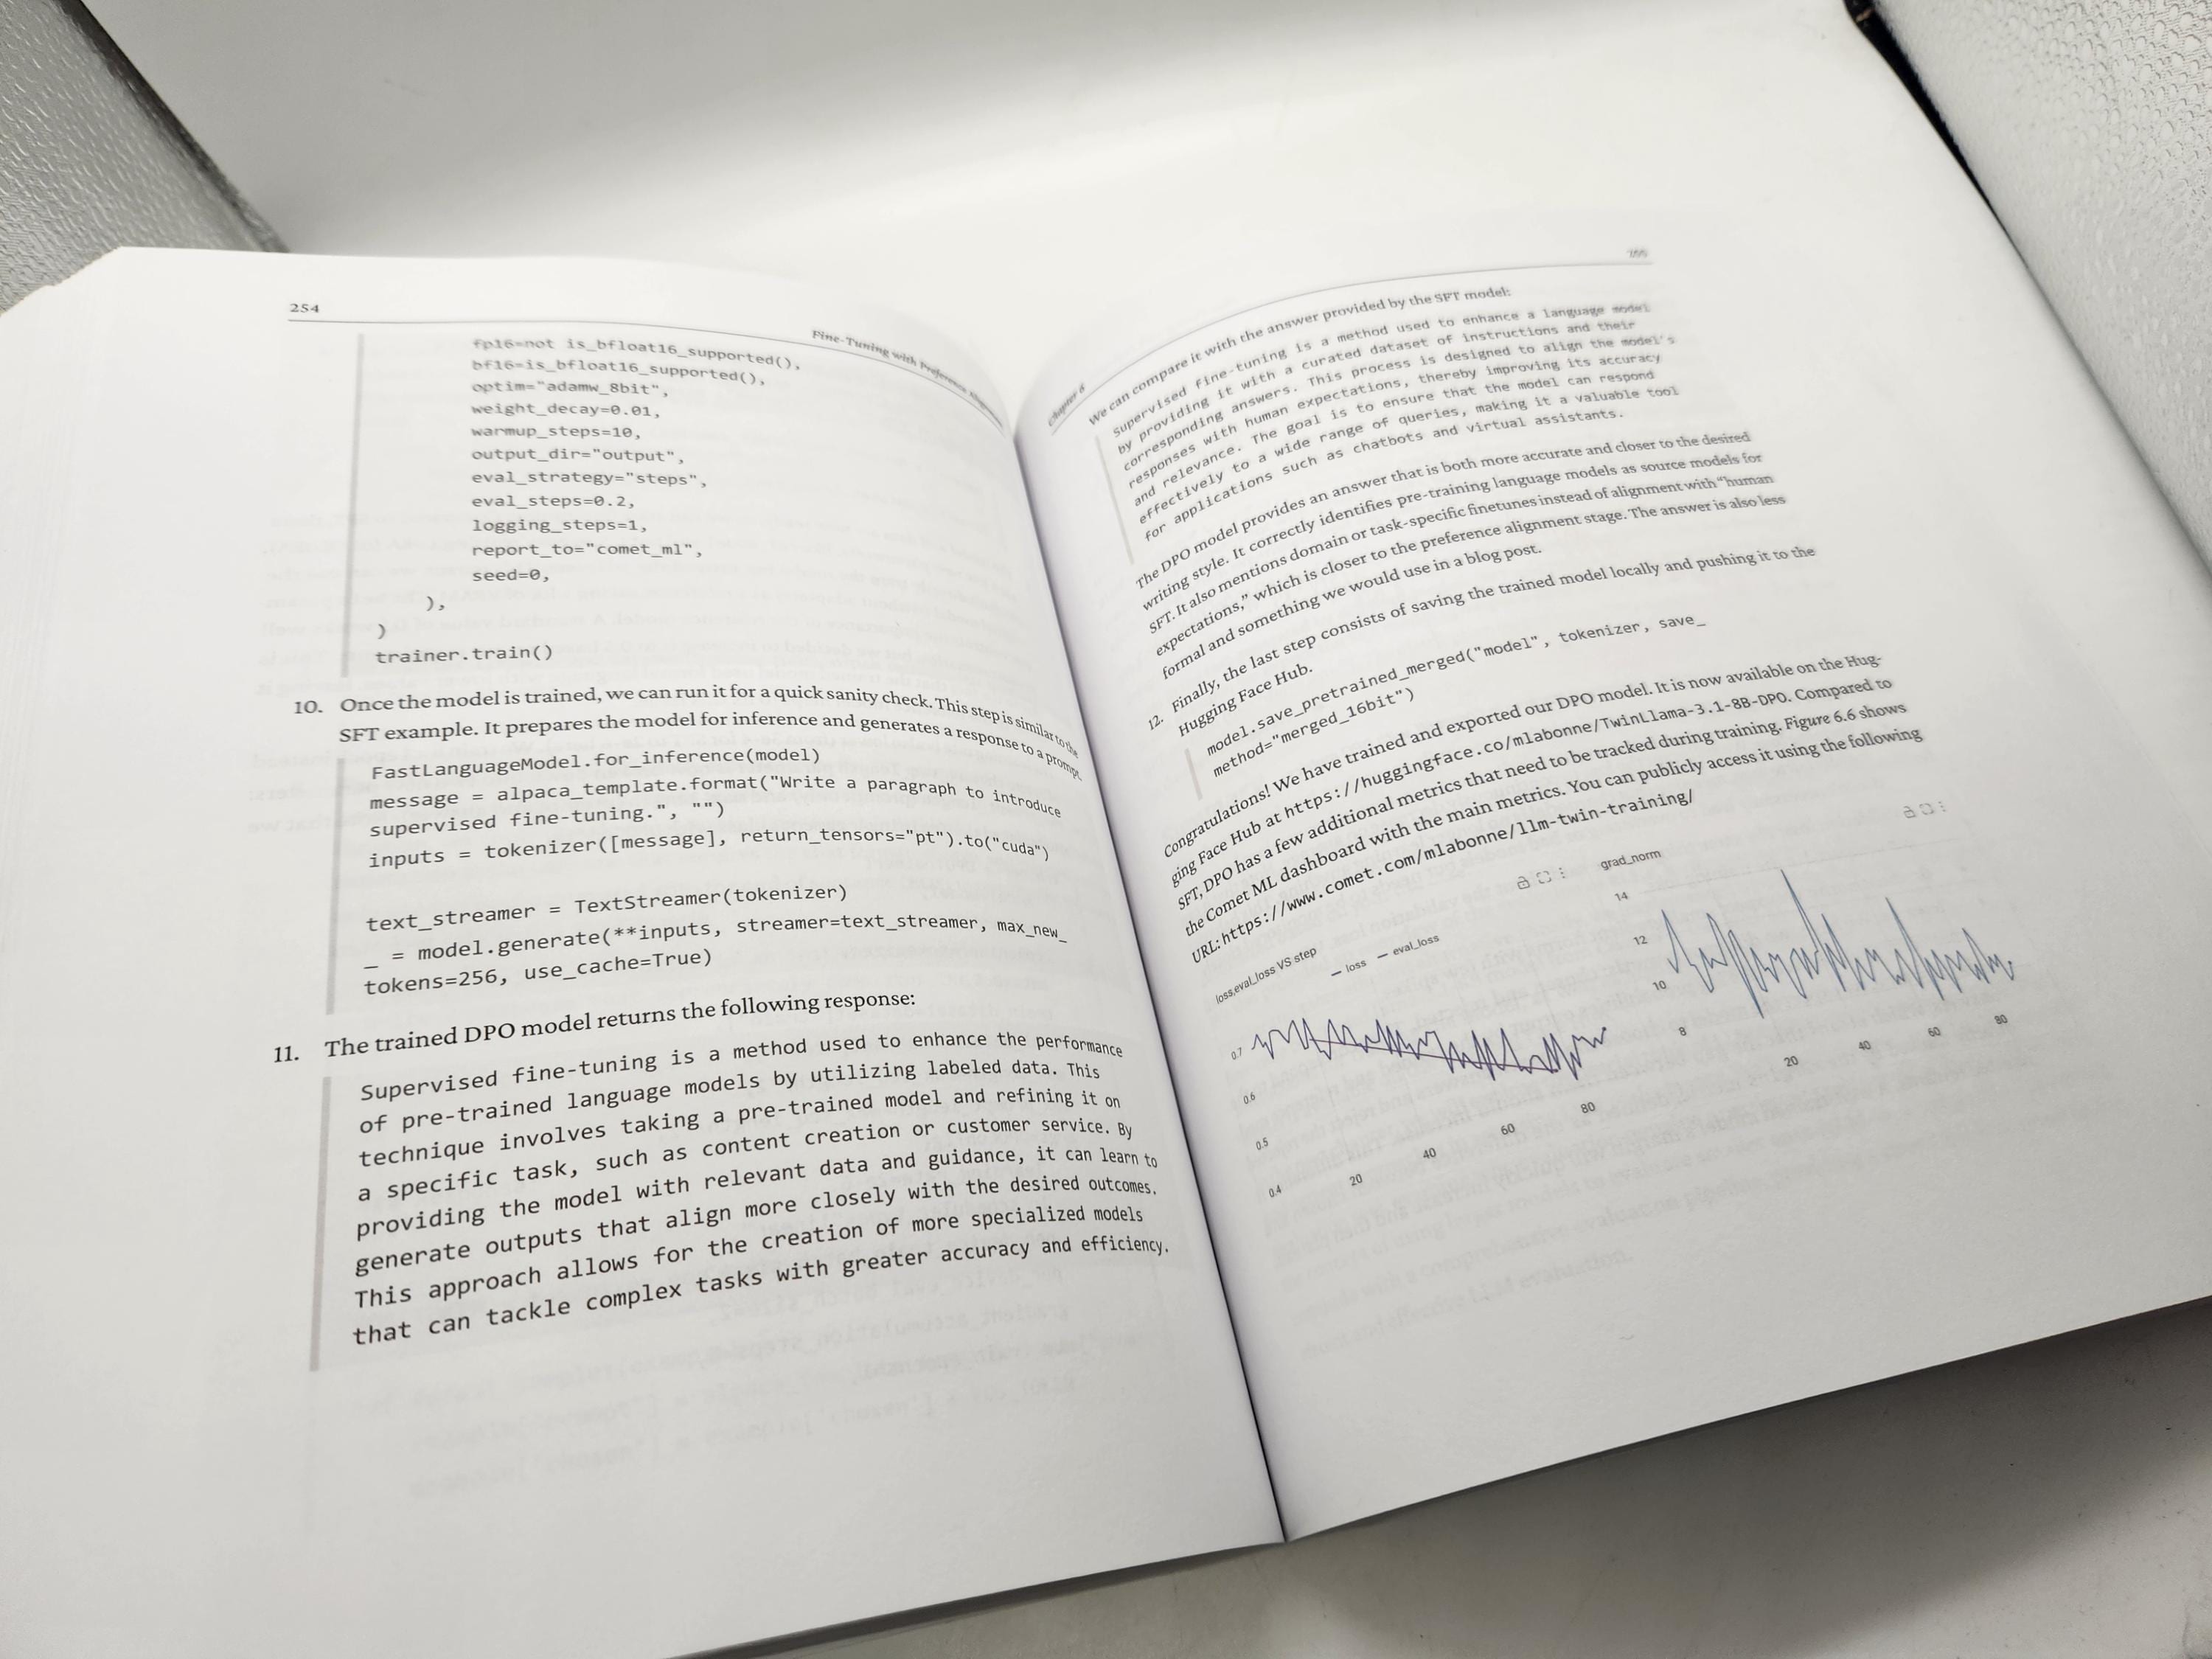 254
Fine-Tuning with Preference
fp16=not is_bfloat16_supported(),
bf16=is_bfloat16_supported(),
optim="adamw_8bit",
weight_decay=0.01,
warmup_steps=10,
output_dir="output",
eval_strategy="steps",
eval_steps=0.2,
logging_steps=1,
report_to="comet_ml",
seed=0,
),
)
trainer.train()
10. Once the model is trained, we can run it for a quick sanity check. This step is similar to the
SFT example. It prepares the model for inference and generates a response to a prompt.
FastLanguageModel.for_inference(model)
message = alpaca_template.format("Write a paragraph to introduce
supervised fine-tuning.", "")
inputs = tokenizer([message], return_tensors="pt").to("cuda")
text_streamer = TextStreamer(tokenizer)
_ = model.generate(**inputs, streamer=text_streamer, max_new_
tokens=256, use_cache=True)
11. The trained DPO model returns the following response:
Supervised fine-tuning is a method used to enhance the performance
of pre-trained language models by utilizing labeled data. This
technique involves taking a pre-trained model and refining it on
a specific task, such as content creation or customer service. By
providing the model with relevant data and guidance, it can learn to
generate outputs that align more closely with the desired outcomes.
This approach allows for the creation of more specialized models
that can tackle complex tasks with greater accuracy and efficiency.
Chapter 6
We can compare it with the answer provided by the SFT model:
Supervised fine-tuning is a method used to enhance a language model
by providing it with a curated dataset of instructions and their
corresponding answers. This process is designed to align the model's
responses with human expectations, thereby improving its accuracy
and relevance. The goal is to ensure that the model can respond
effectively to a wide range of queries, making it a valuable tool
for applications such as chatbots and virtual assistants.
The DPO model provides an answer that is both more accurate and closer to the desired
writing style. It correctly identifies pre-training language models as source models for
SFT. It also mentions domain or task-specific finetunes instead of alignment with "human
expectations," which is closer to the preference alignment stage. The answer is also less
formal and something we would use in a blog post.
12. Finally, the last step consists of saving the trained model locally and pushing it to the
Hugging Face Hub.
model.save_pretrained_merged("model", tokenizer, save_
method="merged_16bit")
Congratulations! We have trained and exported our DPO model. It is now available on the Hug-
ging Face Hub at https://huggingface.co/mlabonne/TwinLlama-3.1-8B-DPO. Compared to
SFT, DPO has a few additional metrics that need to be tracked during training. Figure 6.6 shows
the Comet ML dashboard with the main metrics. You can publicly access it using the following
URL: https://www.comet.com/mlabonne/llm-twin-training/
loss,eval_loss VS step
loss eval_loss
0.7
0.6
0.5
0.4
20 40 60 80
grad_norm
14
12
10
8
20 40 60 80